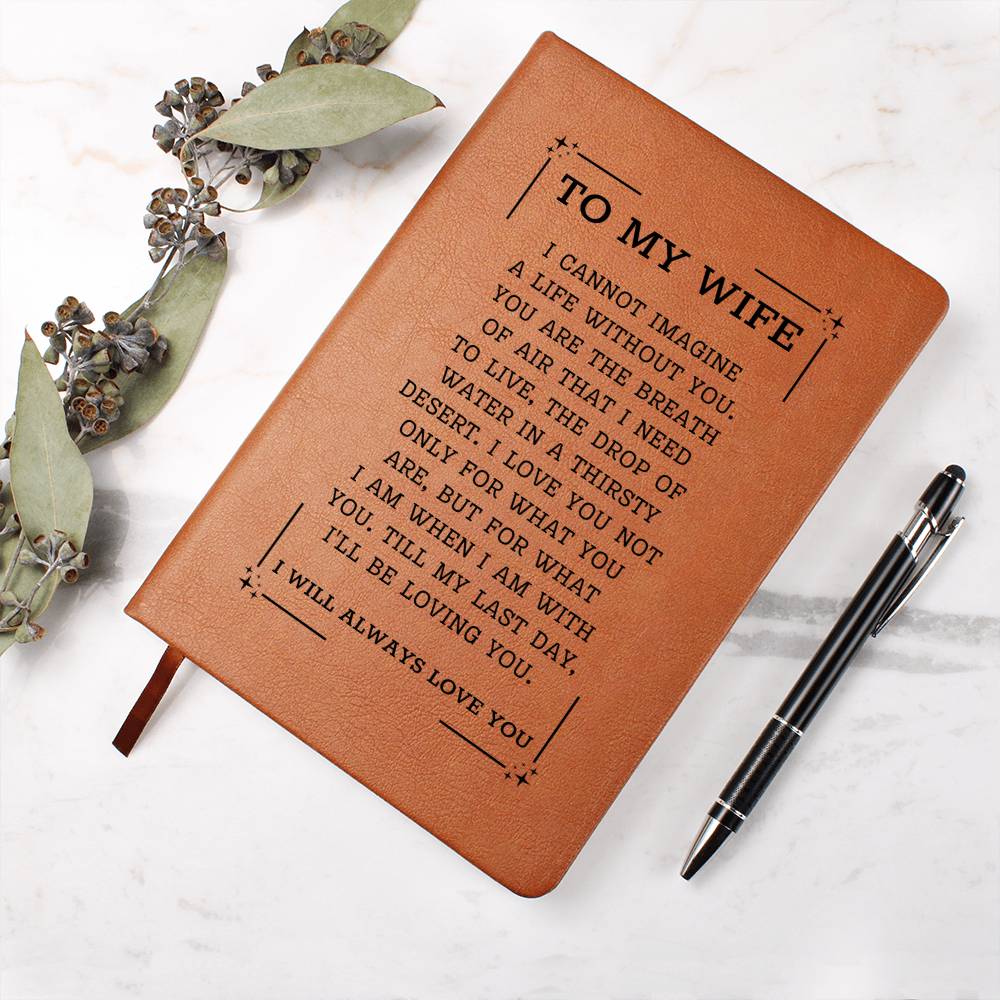 TO MY WIFE
I CANNOT IMAGINE
A LIFE WITHOUT YOU.
YOU ARE THE BREATH
OF AIR THAT I NEED
TO LIVE, THE DROP OF
WATER IN A THIRSTY
DESERT. I LOVE YOU NOT
ONLY FOR WHAT YOU
ARE, BUT FOR WHAT
I AM WHEN I AM WITH
YOU. TILL MY LAST DAY,
I'LL BE LOVING YOU.
I WILL ALWAYS LOVE YOU